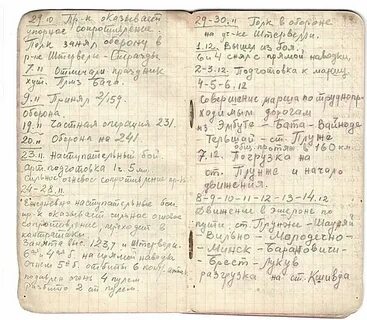 29.10 Пр-к оказывает
упорное сопротивление.
Полк занял оборону в
р-ке Штервери-
7.11 Отмечали праздник
хут. Плмз Бача.
9.11 Принял 2/159.
Оборона.
19.11 Частная операция 231.
20.11 Оборона на 241.
23.11 Наступательный бой.
Арт. подготовка 1ч. 5м
Сильное огневое сопротивление пр-ка
24-28.11.
Ежедневно наступательные бои,
пр-к оказывает сильное огневое
сопротивление, переходит в
контратаки.
Занята выс. 123,7 и Штервери.
6ю и 4ю б. на прямой наводке
огнем 5ю б отбиты 6 контратак
подавлен огонь 4 пулем
разбито 2 ст. пулем.
29-30.11 Полк в обороне
на уч-ке Штервери.
1.12. Вышел из боя.
6 и 4 снял с прямой наводки.
2-3.12. Подготовка к маршу
4-5-6.12
Совершение марша по труднопро-
ходимым дорогам
из Элбута - Бата - Вайноде
Тельшай - ст. Пруна
общ. протяж. в 160 км.
7.12. Погрузка на
ст. Прунже и начало
движения.
8-9-10-11-12-13-14.12
Движение в эшелоне по
пути: ст. Прунжи - Шауляй
- Вильно - Молодечно -
- Минск - Барановичи -
- Брест - Лукув
разгрузка на ст. Кшивда